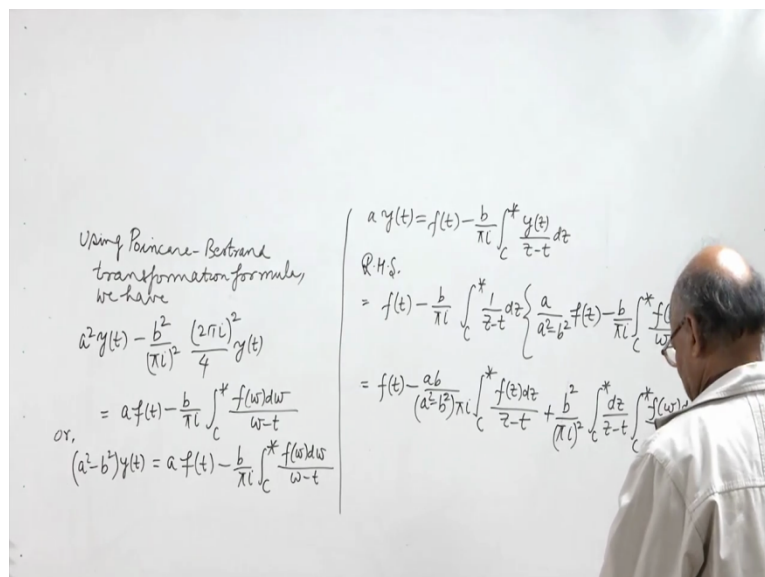 Using Poincare-Bertrand
transformation formula,
we have
a²y(t) − b²/(πi)² (2πi)²/4 y(t)
= a f(t) − b/πi ∫_C^* f(w)dw/w−t
or,
(a²−b²)y(t) = a f(t) − b/πi ∫_C^* f(w)dw/w−t
a y(t) = f(t) − b/πi ∫_C^* y(z)/z−t dz
R.H.S.
= f(t) − b/πi ∫_C^* 1/z−t dz { a/a²−b² f(z) − b/πi ∫_C^*
= f(t) − ab/(a²−b²)πi ∫_C^* f(z)dz/z−t + b²/(πi)² ∫_C^* dz/z−t ∫_C^* f(w)